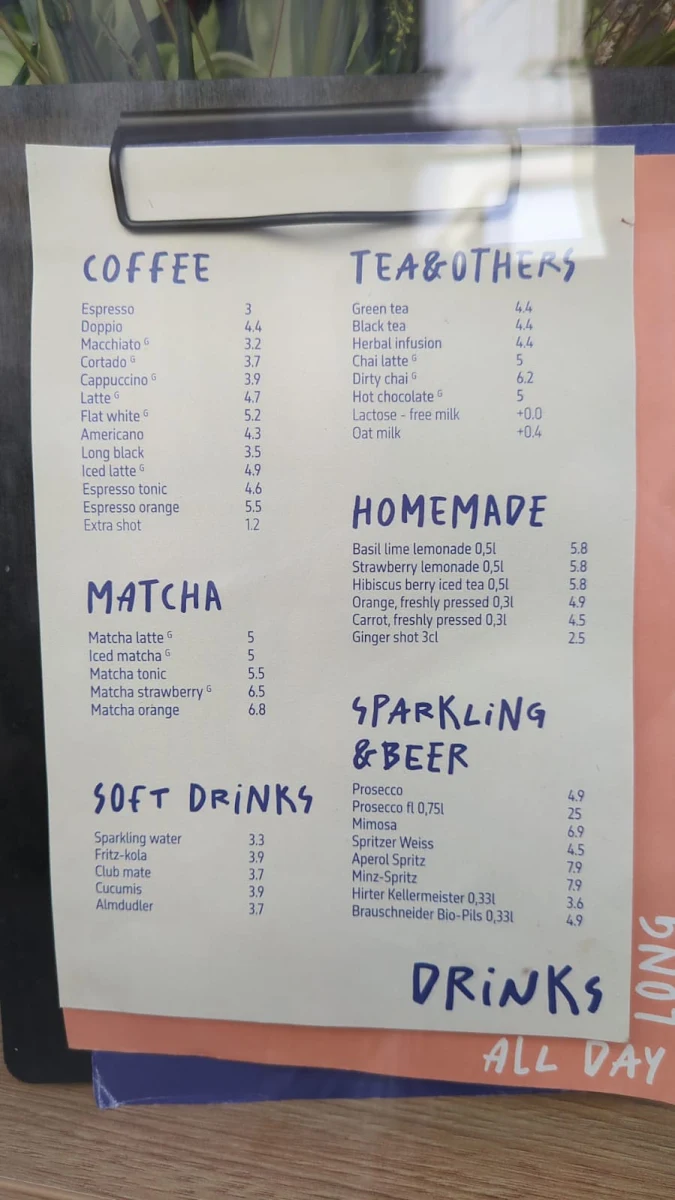 COFFEE
Espresso 3
Doppio 4.4
Macchiato G 3.2
Cortado G 3.7
Cappuccino G 3.9
Latte G 4.7
Flat white G 5.2
Americano 4.3
Long black 3.5
Iced latte G 4.9
Espresso tonic 4.6
Espresso orange 5.5
Extra shot 1.2
MATCHA
Matcha latte G 5
Iced matcha G 5
Matcha tonic 5.5
Matcha strawberry G 6.5
Matcha orange 6.8
SOFT DRiNKS
Sparkling water 3.3
Fritz-kola 3.9
Club mate 3.7
Cucumis 3.9
Almdudler 3.7
TEA&OTHERS
Green tea 4.4
Black tea 4.4
Herbal infusion 4.4
Chai latte G 5
Dirty chai G 6.2
Hot chocolate G 5
Lactose - free milk +0.0
Oat milk +0.4
HOMEMADE
Basil lime lemonade 0,5l 5.8
Strawberry lemonade 0,5l 5.8
Hibiscus berry iced tea 0,5l 5.8
Orange, freshly pressed 0,3l 4.9
Carrot, freshly pressed 0,3l 4.5
Ginger shot 3cl 2.5
SPARKLiNG
&BEER
Prosecco 4.9
Prosecco fl 0,75l 25
Mimosa 6.9
Spritzer Weiss 4.5
Aperol Spritz 7.9
Minz-Spritz 7.9
Hirter Kellermeister 0,33l 3.6
Brauschneider Bio-Pils 0,33l 4.9
DRiNKS
ALL DAY
LONG